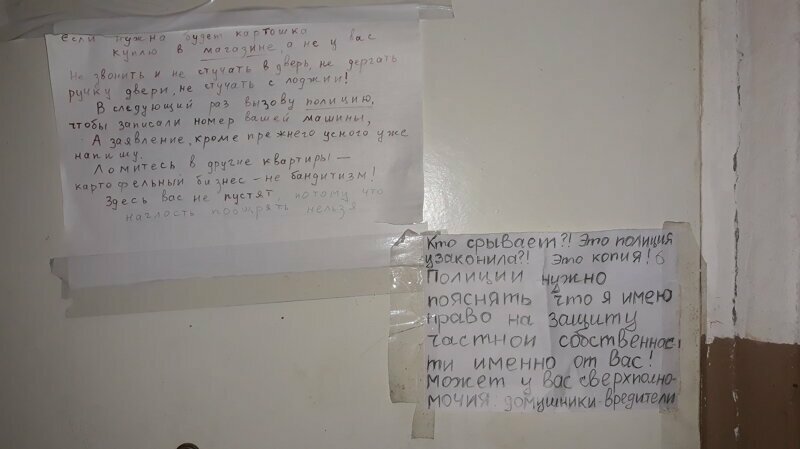 если нужна будет картошка
куплю в магазине, а не у вас
Не звонить и не стучать в дверь, не дергать
ручку двери, не стучать с лоджии!
В следующий раз вызову полицию,
чтобы записали номер вашей машины,
А заявление, кроме прежнего усного уже
напишу.
Ломитесь в другие квартиры —
картофельный бизнес - не бандитизм!
Здесь вас не пустят, потому что
наглость поощрять нельзя
Кто срывает?! Это полиция
узаконила?! Это копия! 6
Полиции нужно
пояснять что я имею
право на защиту
частной собственнос
ти именно от Вас!
может у вас сверхполно-
мочия домушники-вредители